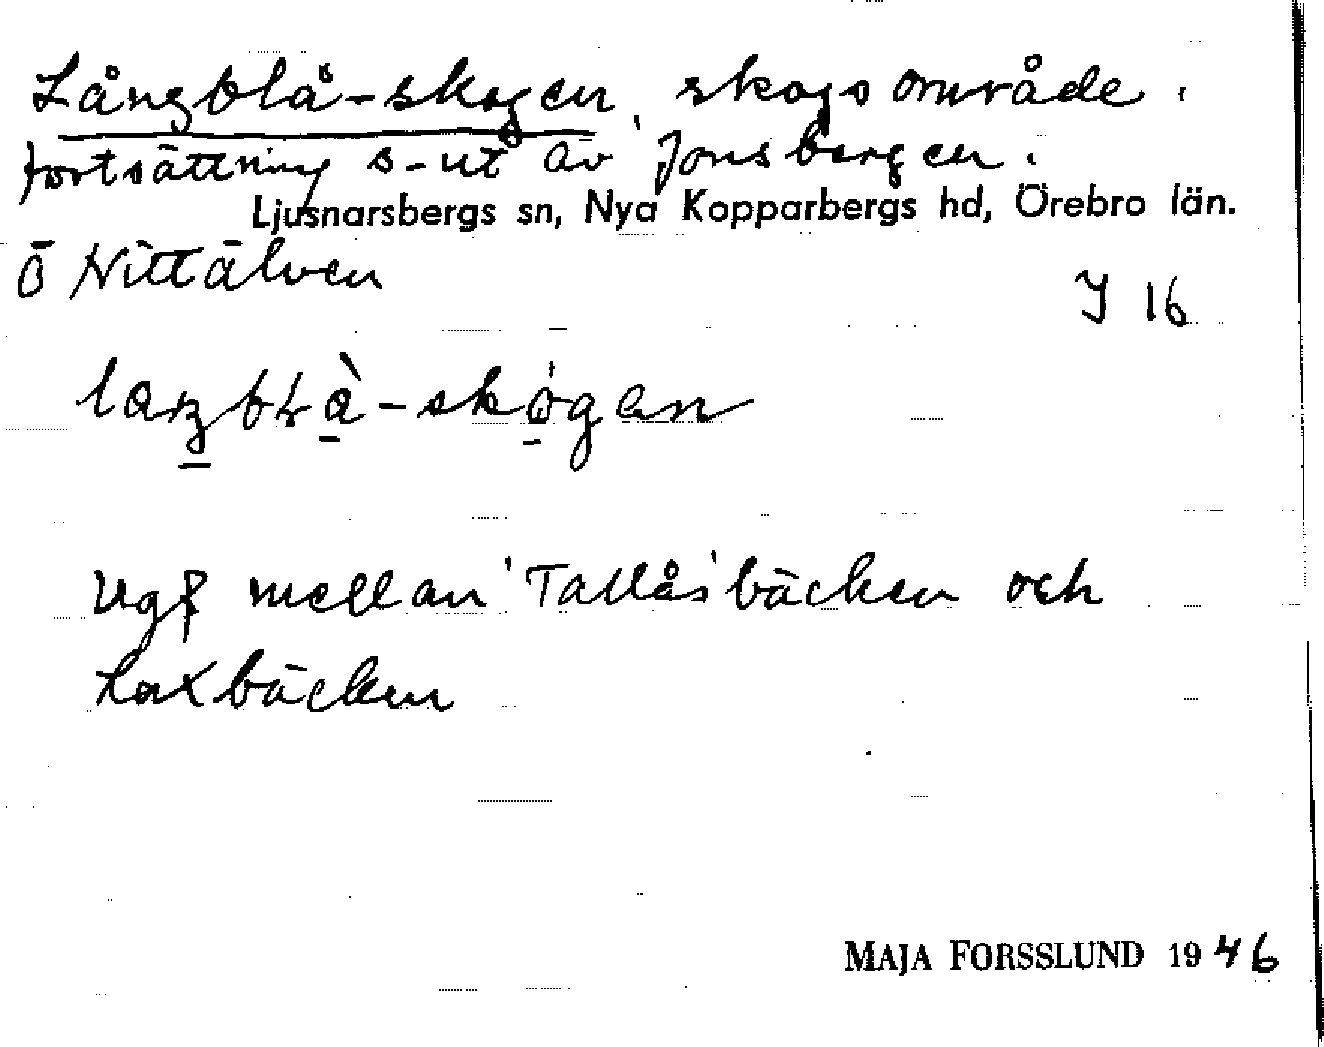 Långblå-skogen, skogsområde.
fortsättning s-ut av 'Jonsbergen.
Ljusnarsbergs sn, Nya Kopparbergs hd, Örebro län.
Ö Nittälven
J 16
laŋblà-skógan
Ugf mellan 'Tallås'bäcken och
Laxbäcken
MAJA FORSSLUND 1946